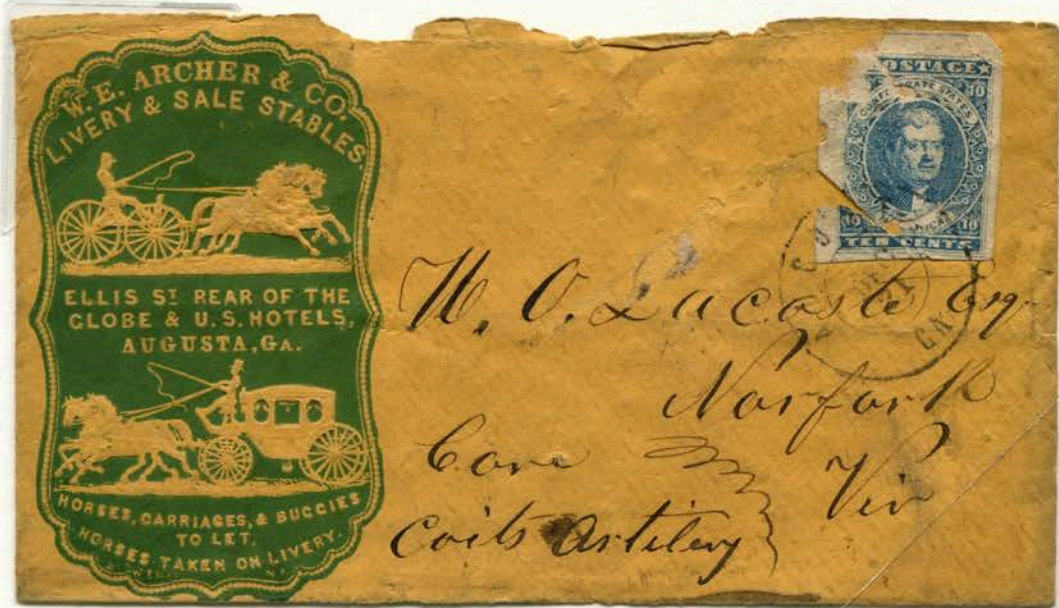 W. E. ARCHER & CO.
LIVERY & SALE STABLES
ELLIS ST. REAR OF THE
GLOBE & U.S. HOTELS,
AUGUSTA, GA.
HORSES, CARRIAGES, & BUGGIES
TO LET.
HORSES TAKEN ON LIVERY.
OSTAGE
10
STATES
10 10
TEN CENTS
GA
W. O. Lacoste Esq
Norfork
Vir
Care
Coits Artilery